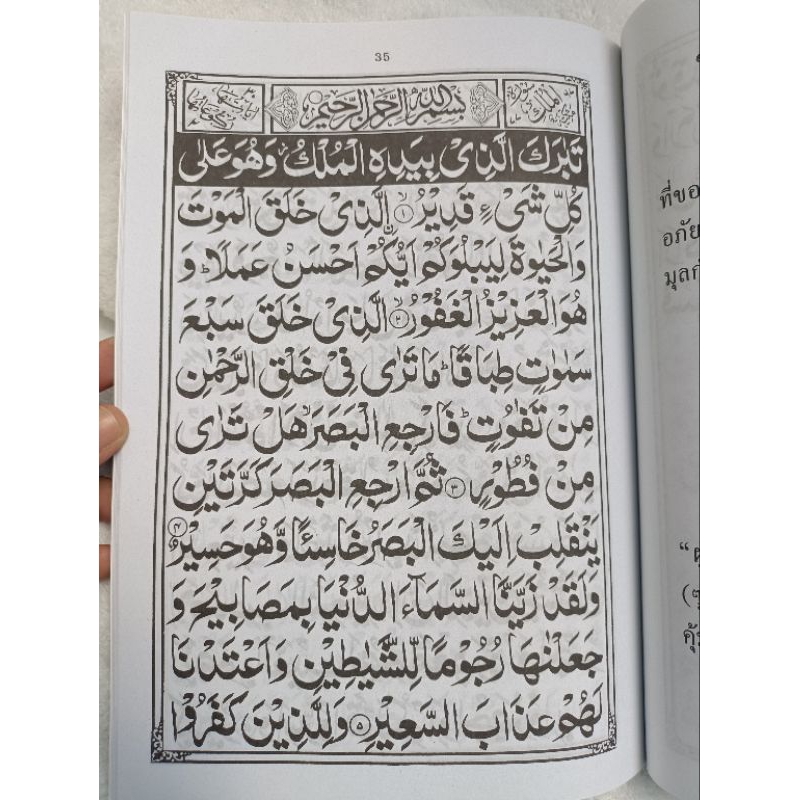 35
بِسْمِ اللهِ الرَّحْمٰنِ الرَّحِيْمِ
تَبٰرَكَ الَّذِىْ بِيَدِهِ الْمُلْكُ وَهُوَ عَلٰى
كُلِّ شَىْءٍ قَدِيْرُ ۨ ﴿۱﴾ الَّذِىْ خَلَقَ الْمَوْتَ
وَالْحَيٰوةَ لِيَبْلُوَكُمْ اَيُّكُمْ اَحْسَنُ عَمَلًا ؕ وَ
هُوَ الْعَزِيْزُ الْغَفُوْرُ ﴿۲﴾ الَّذِىْ خَلَقَ سَبْعَ
سَمٰوٰتٍ طِبَاقًا ؕ مَا تَرٰى فِىْ خَلْقِ الرَّحْمٰنِ
مِنْ تَفٰوُتٍ ؕ فَارْجِعِ الْبَصَرَ هَلْ تَرٰى
مِنْ فُطُوْرٍ ﴿۳﴾ ثُمَّ ارْجِعِ الْبَصَرَ كَرَّتَيْنِ
يَنْقَلِبْ اِلَيْكَ الْبَصَرُ خَاسِئًا وَّهُوَ حَسِيْرٌ ﴿۴﴾
وَلَقَدْ زَيَّنَّا السَّمَآءَ الدُّنْيَا بِمَصَابِيْحَ وَ
جَعَلْنٰهَا رُجُوْمًا لِّلشَّيٰطِيْنِ وَاَعْتَدْنَا
لَهُمْ عَذَابَ السَّعِيْرِ ﴿۵﴾ وَلِلَّذِيْنَ كَفَرُوْا
ที่ขอ
อภัย